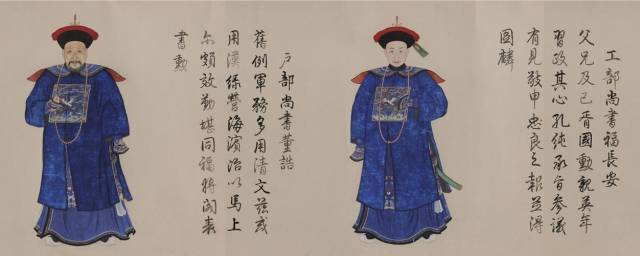 工部尚書福長安
父兄及己胥國勳親英年
習政其心孔純承旨參議
有見敬申忠良之報並得
圖麟
戶部尚書董誥
舊例軍務多用清文茲或
用漢綠營海濱治以馬上
尔頗效勤堪同福將閣表
書勳